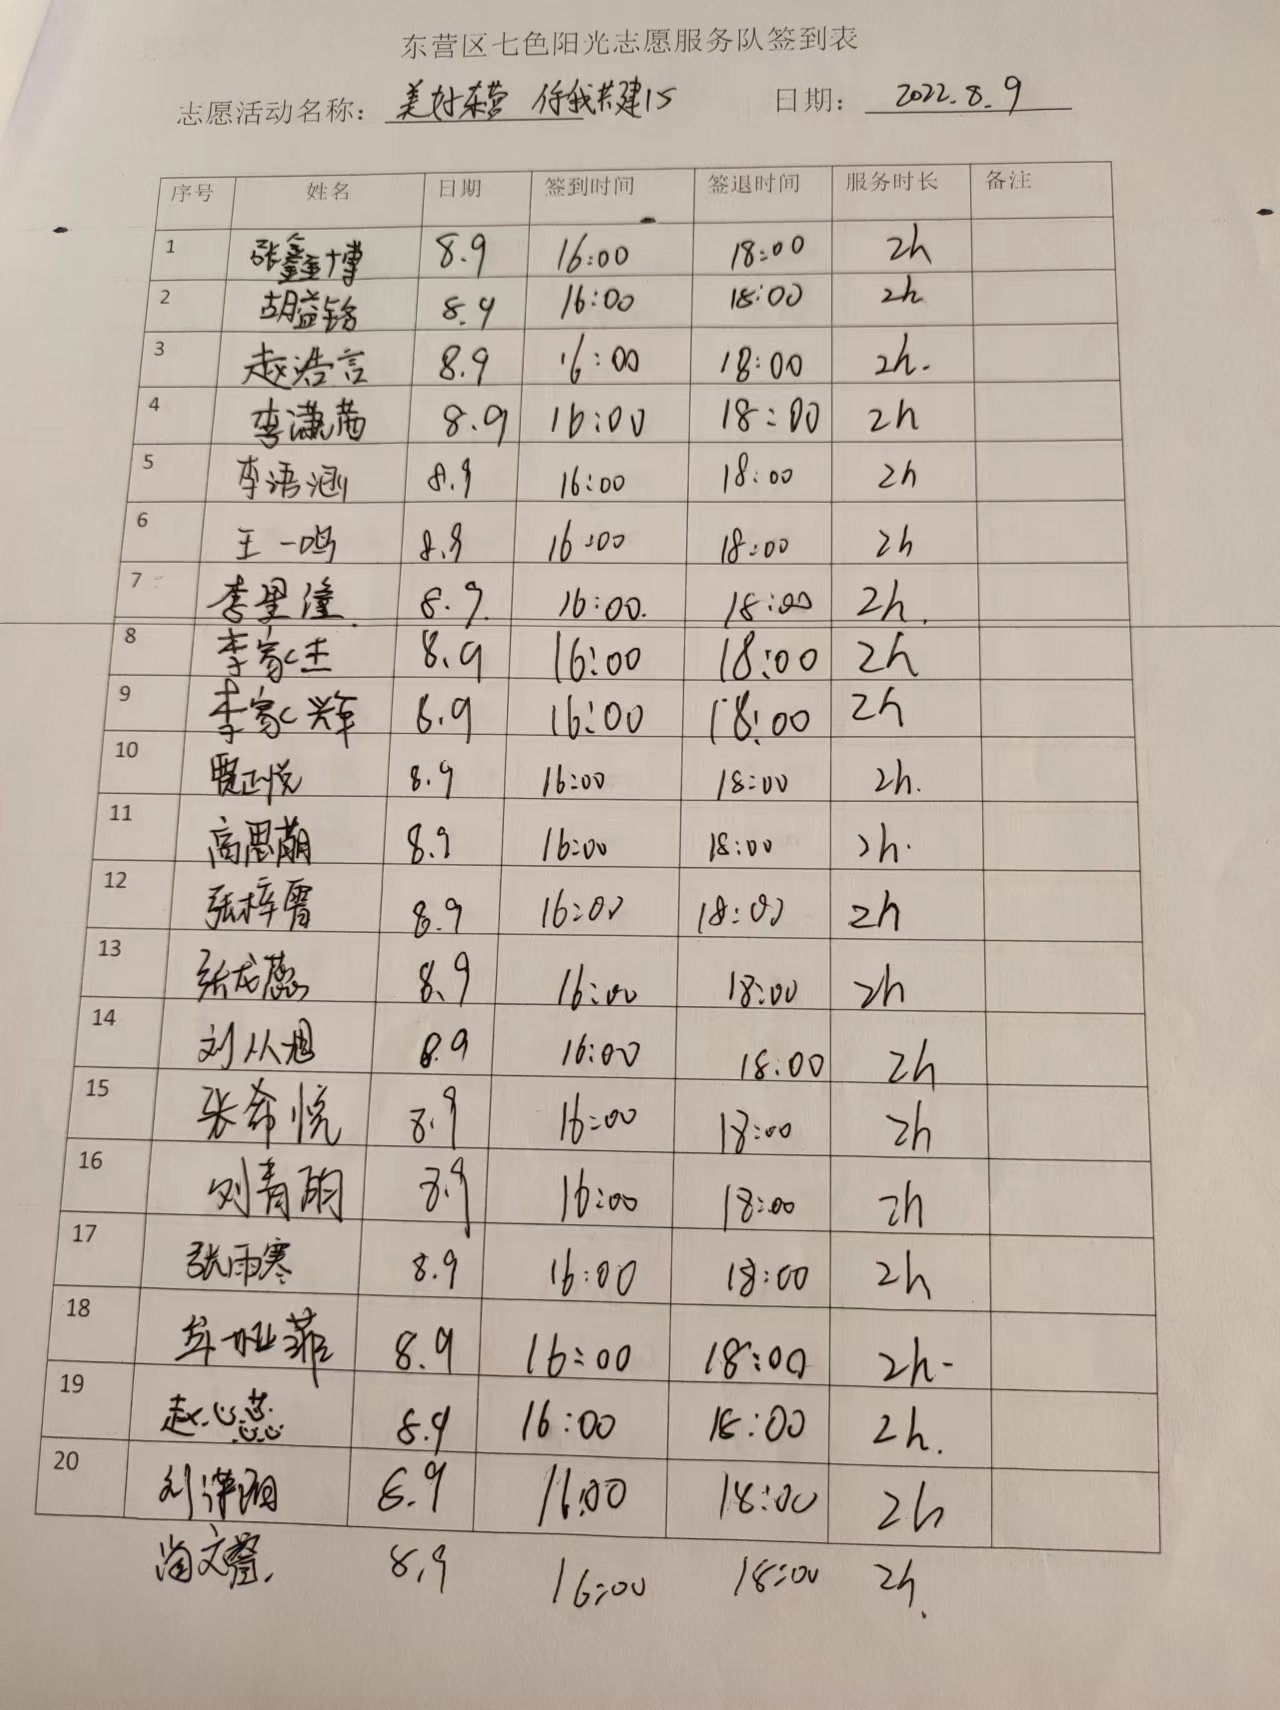 东营区七色阳光志愿服务队签到表
志愿活动名称: 美好东营 你我共建15 日期: 2022.8.9
序号 姓名 日期 签到时间 签退时间 服务时长 备注
1 张鑫博 8.9 16:00 18:00 2h
2 胡益铭 8.9 16:00 18:00 2h
3 赵浩言 8.9 16:00 18:00 2h.
4 李潇茜 8.9 16:00 18:00 2h
5 李语涵 8.9 16:00 18:00 2h
6 王一鸣 8.9 16:00 18:00 2h
7 李星潼. 8.9. 16:00. 18:00 2h.
8 李家杰 8.9 16:00 18:00 2h
9 李家兴 8.9 16:00 18:00 2h
10 贾正悦 8.9 16:00 18:00 2h.
11 高思萌 8.9 16:00 18:00 2h.
12 张梓霄 8.9 16:00 18:00 2h
13 张龙蕊 8.9 16:00 18:00 2h
14 刘从旭 8.9 16:00 18:00 2h
15 张希悦 8.9 16:00 18:00 2h
16 刘青昀 8.9 16:00 18:00 2h
17 张雨寒 8.9 16:00 18:00 2h
18 牟娅菲 8.9 16:00 18:00 2h-
19 赵心蕊 8.9 16:00 18:00 2h.
20 刘 8.9 16:00 18:00 2h
尚文 8.9 16:00 18:00 2h.